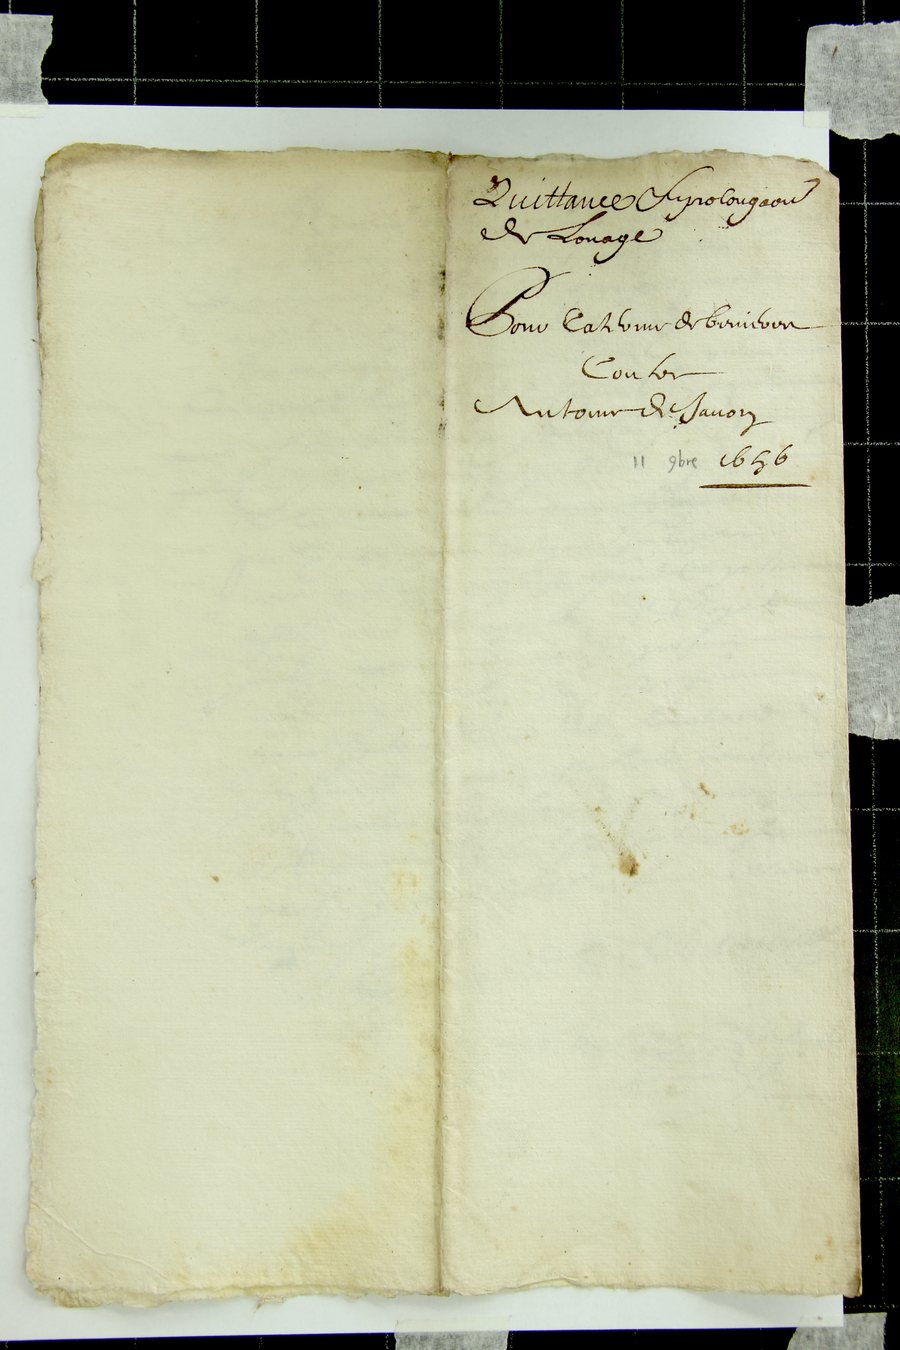 Quittance & prolongaon
de Louage
Pour Catherine de
Contre
Antoine de Sauon
11 9bre 1656